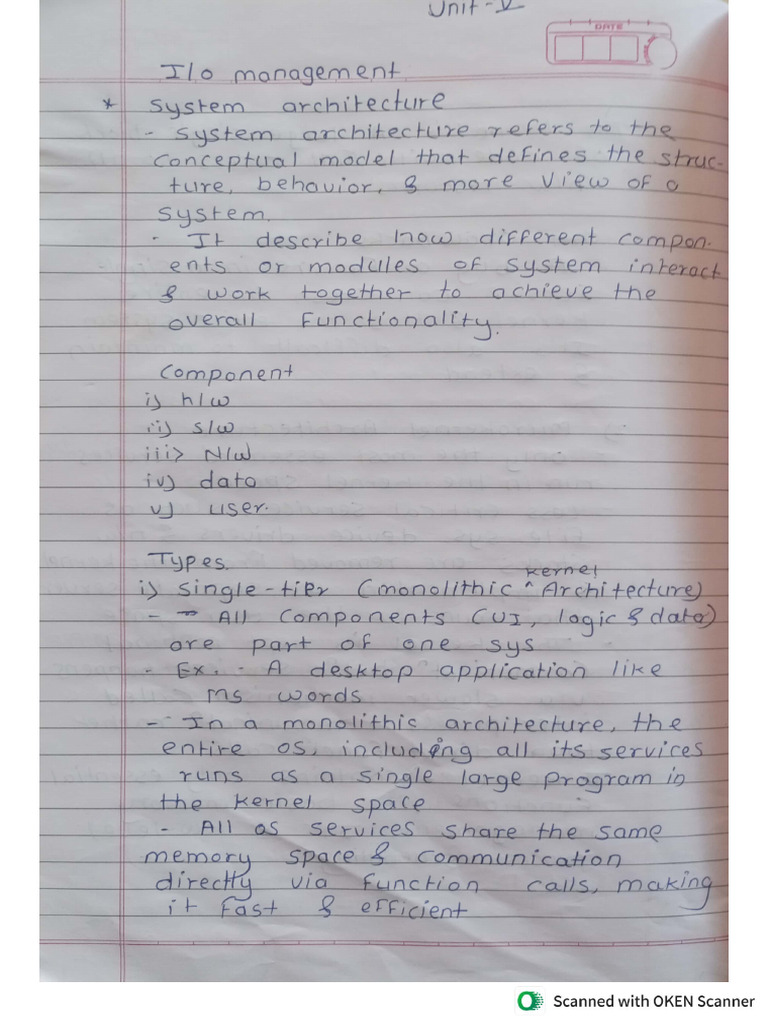 Unit-V
DATE
I/o management
* system architecture
- system architecture refers to the
conceptual model that defines the struc-
ture, behavior, & more view of a
system.
- It describe how different compon-
ents or modules of system interact
& work together to achieve the
overall functionality.
Component
i) h/w
ii) s/w
iii) N/W
iv) data
v) user.
Types.
kernel
i) single-tier (monolithic ^ Architecture)
- - All components (UI, logic & data)
are part of one sys
- Ex. - A desktop application like
ms words
- In a monolithic architecture, the
entire os, including all its services
runs as a single large program in
the kernel space
- All os services share the same
memory space & communication
directly via function calls, making
it fast & efficient
Scanned with OKEN Scanner